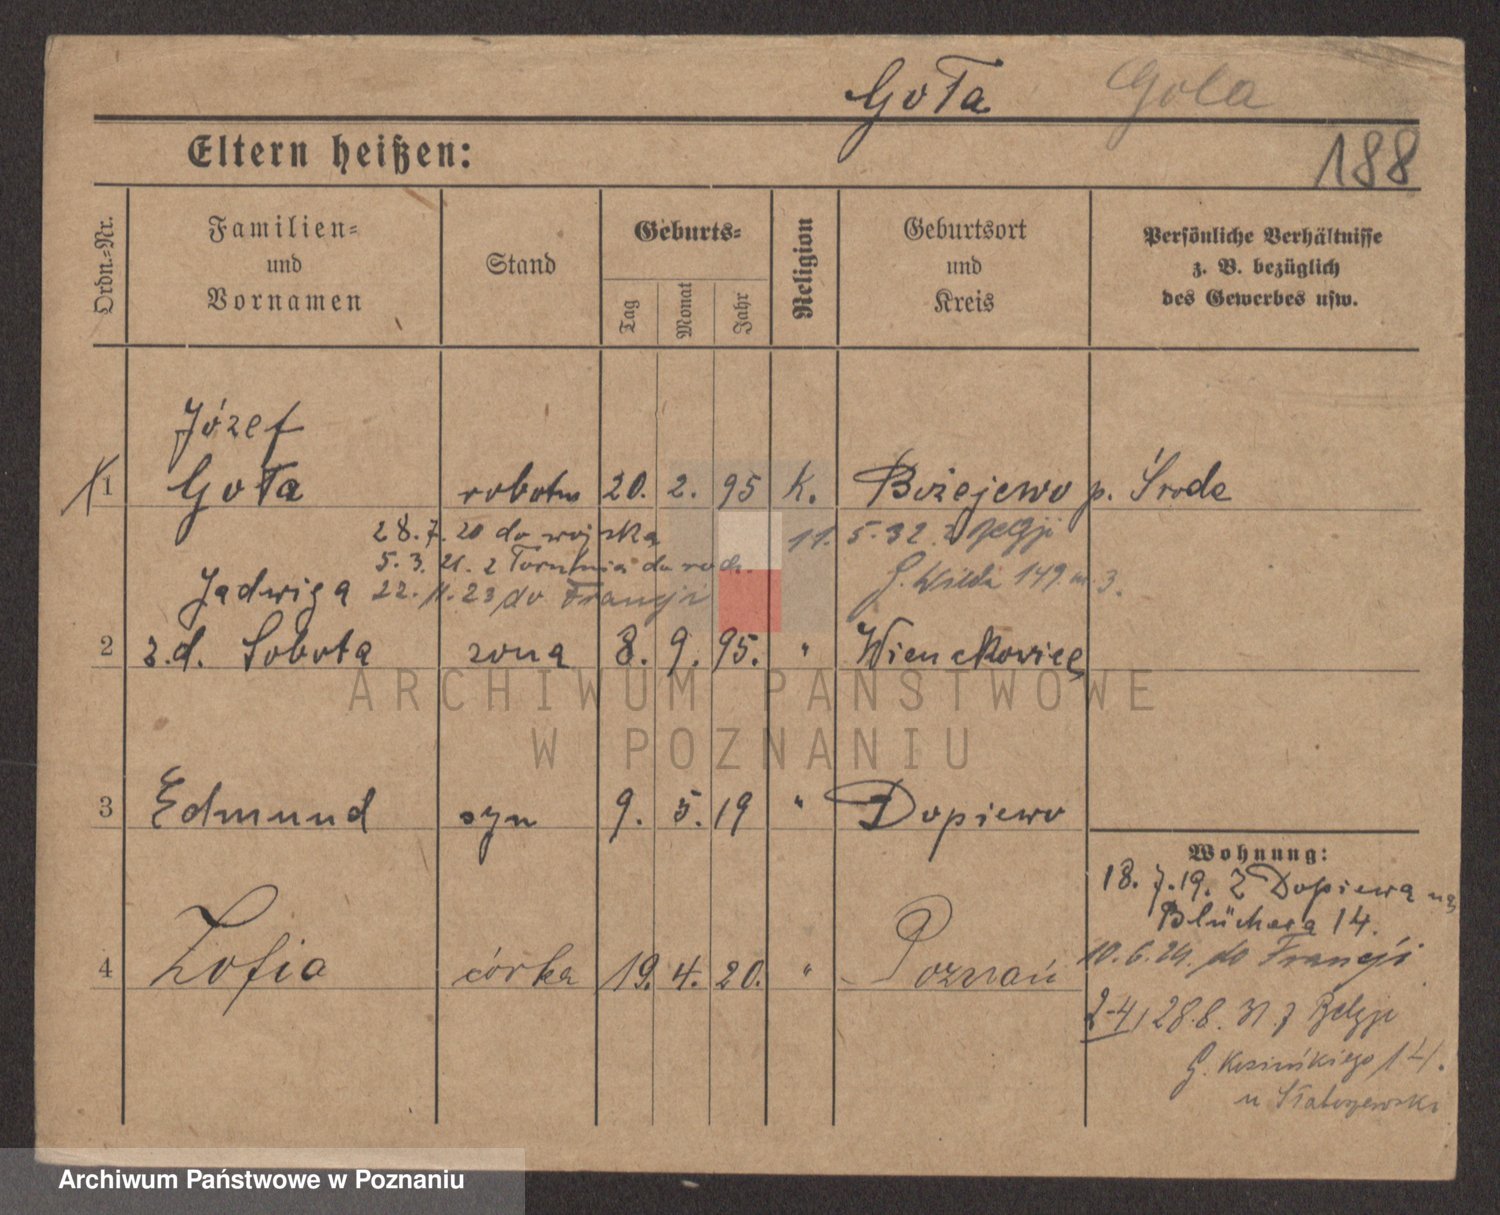 Goła Gola
Eltern heißen:
188
Ordn.-Nr.
Familien-
und
Vornamen
Stand
Geburts-
Tag
Monat
Jahr
Religion
Geburtsort
und
Kreis
Persönliche Verhältnisse
z. B. bezüglich
des Gewerbes usw.
Józef
1 Goła robotn 20. 2. 95 k. Bożejewo p. Środa
28.7.20 do wojska
11.5.32 z Belgji
5.3.21. z Torunia do rodz.
22.11.23 do Francji
G. Wilda 149 m 3.
Jadwiga
2 z.d. Sobota żona 8. 9. 95. "
3 Edmund syn 9. 5. 19 " Dopiewo
Wohnung:
18.7.19. Z Dopiewa na
Blüchera 14.
4 Zofia córka 19. 4. 20. " Poznań
10.6.24. do Francji
2-4, 28.8.31 z Belgji
14.
ARCHIWUM PAŃSTWOWE
W POZNANIU
Archiwum Państwowe w Poznaniu